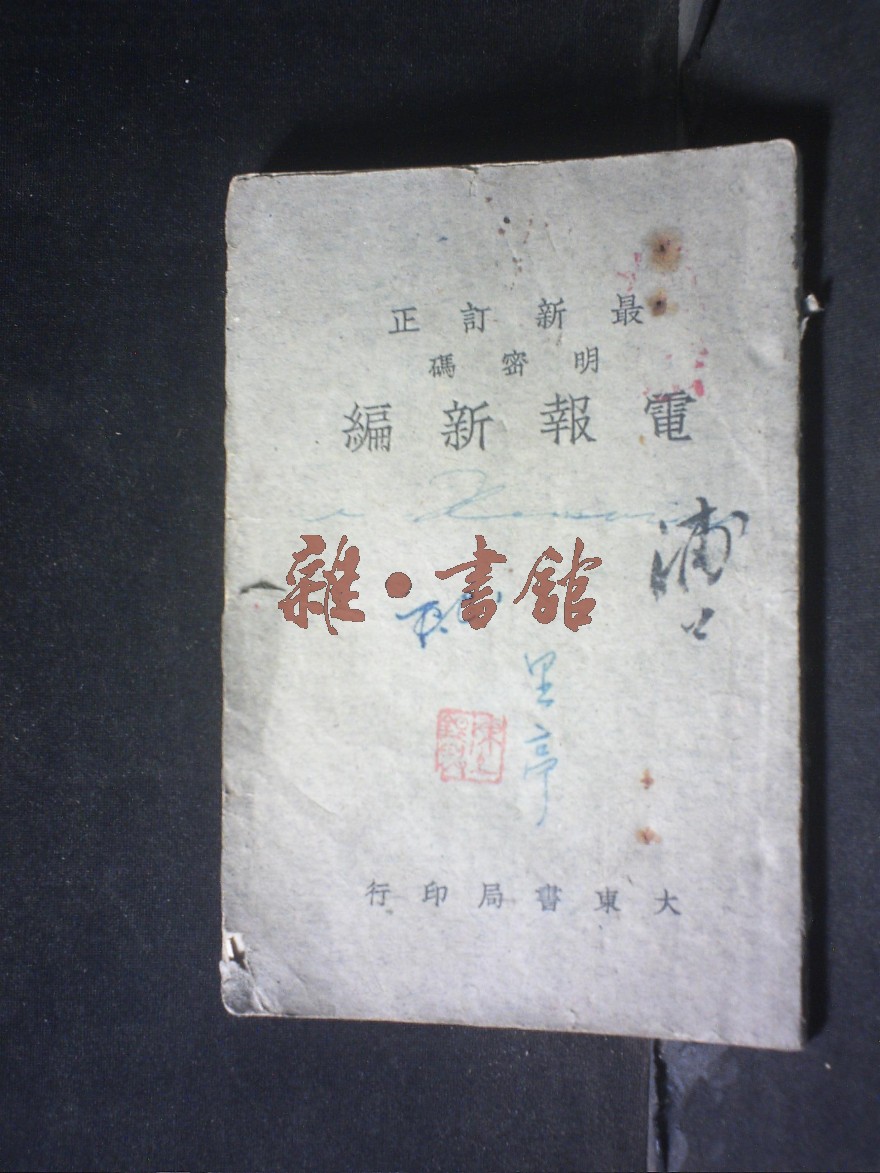 最新訂正
明密碼
電報新編
浦口
雜·書館
里亭
大東書局印行